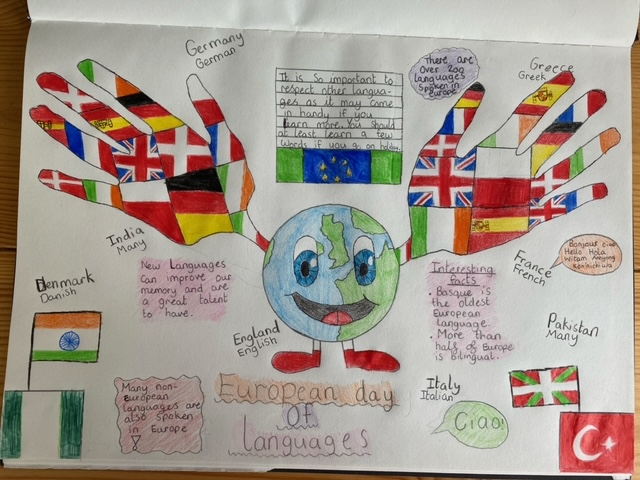 Germany
German
It is so important to
respect other langua-
ges as it may come
in handy if you
learn more. You should
at least learn a few
words if you go on holiday.
There are
Over 200
languages
Spoken in
Europe
Greece
Greek
India
Many
Denmark
Danish
New Languages
can improve our
memory and are
a great talent
to have.
England
English
Interesting
facts
• Basque is
the oldest
European
language.
• More than
half of Europe
is Bilingual.
France
French
Bonjour Ciao
Hello Hola
Witam
Pakistan
Many
Many non-
European
languages are
also spoken
in Europe
!
European day
Of
languages
Italy
Italian
Ciao!